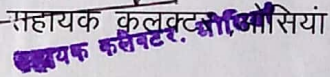 सहायक कलक्टर ओसियां
सहायक कलेक्टर, ओसियां